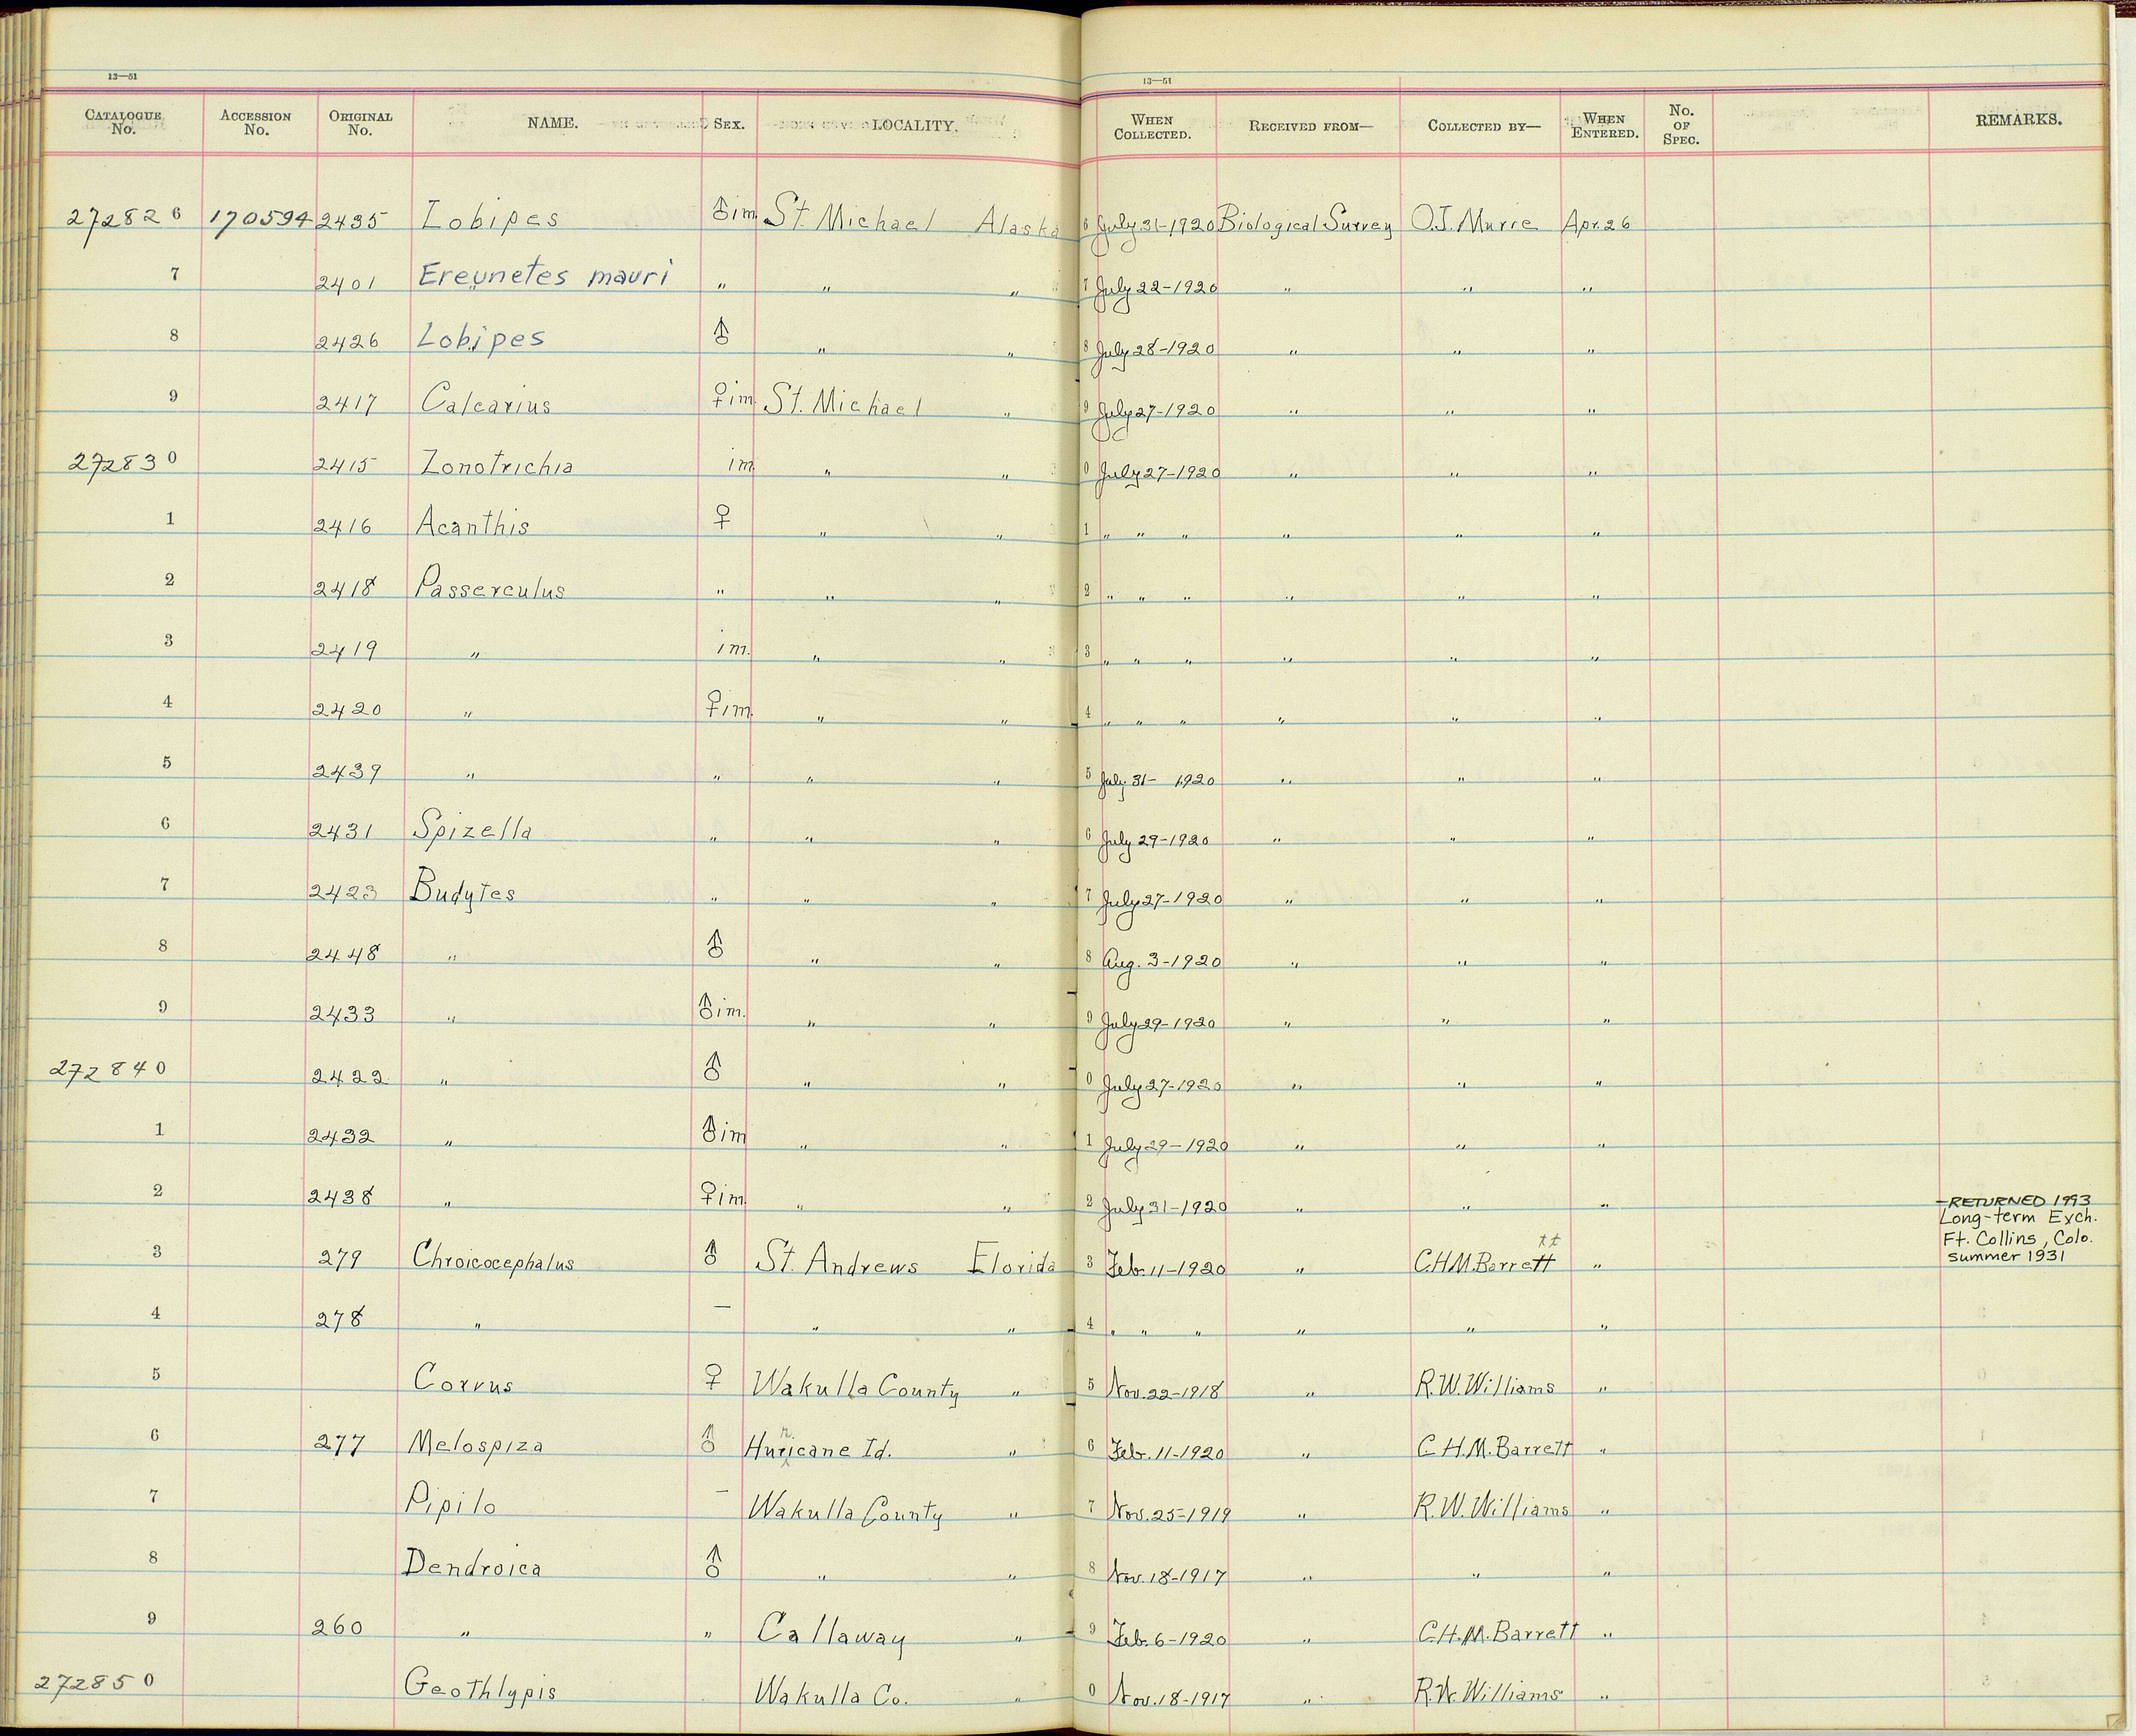 13—51 13—51
CATALOGUE No. ACCESSION No. ORIGINAL No. NAME. SEX. LOCALITY. WHEN COLLECTED. RECEIVED FROM— COLLECTED BY— WHEN ENTERED. No. OF SPEC. REMARKS.
272826 170594 2435 Lobipes ♂im St. Michael Alaska 6 July 31-1920 Biological Survey O.J. Murie Apr. 26
7 2401 Ereunetes mauri " " " 7 July 22-1920 " " "
8 2426 Lobipes ♂ " " 8 July 28-1920 " " "
9 2417 Calcarius ♀im. St. Michael " 9 July 27-1920 " " "
272830 2415 Zonotrichia im " " 0 July 27-1920 " " "
1 2416 Acanthis ♀ " " 1 " " " " " "
2 2418 Passerculus " " " 2 " " " " " "
3 2419 " im. " " 3 " " " " " "
4 2420 " ♀im. " " 4 " " " " " "
5 2439 " " " " 5 July 31- 1920 " " "
6 2431 Spizella " " " 6 July 29-1920 " " "
7 2423 Budytes " " " 7 July 27-1920 " " "
8 2448 " ♂ " " 8 Aug. 3-1920 " " "
9 2433 " ♂im. " " 9 July 29-1920 " " "
272840 2422 " ♂ " " 0 July 27-1920 " " "
1 2432 " ♂im " " 1 July 29-1920 " " "
2 2438 " ♀im " " 2 July 31-1920 " " " —RETURNED 1993
Long-term Exch.
Ft. Collins, Colo.
summer 1931
3 279 Chroicocephalus ♂ St. Andrews Florida 3 Feb. 11-1920 " C.H.M. Barrett tt "
4 278 " — " " 4 " " " " " "
5 Corvus ♀ Wakulla County " 5 Nov. 22-1918 " R.W. Williams "
6 277 Melospiza ♂ Hurricane Id. " 6 Feb. 11-1920 " C.H.M. Barrett "
7 Pipilo — Wakulla County " 7 Nov. 25-1919 " R.W. Williams "
8 Dendroica ♂ " " 8 Nov. 18-1917 " " "
9 260 " " Callaway " 9 Feb. 6-1920 " C.H.M. Barrett "
272850 Geothlypis Wakulla Co. " 0 Nov. 18-1917 " R.W. Williams "